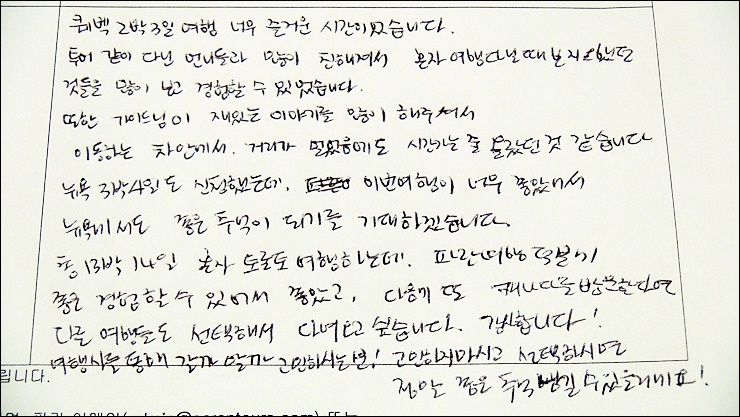 퀘벡 2박3일 여행 너무 즐거운 시간이였습니다.
투어 같이 다닌 언니들과 많이 친해져서 혼자 여행다닐때 보지 못했던
것들을 많이 보고 경험할 수 있었습니다.
또한 가이드님이 재있는 이야기를 많이 해주셔서
이동하는 차안에서. 거리가 멀었음에도 시간가는 줄 몰랐던 것 같습니다
뉴욕 3박4일도 신청했는데. 이번여행이 너무 좋았어서
뉴욕에서도 좋은 추억이 되기를 기대하겠습니다.
총 13박 14일 혼자 토론토 여행하는데. 파란여행 덕분에
좋은 경험할 수 있어서 좋았고, 다음에 또 캐나다를 방문한다면
다른 여행들도 선택해서 다녀보고 싶습니다. 감사합니다!
여행사를 통해 갈까 말까 고민하시는분! 고민하지마시고 선택하시면
정말 좋은 추억 생길 수있을거에요!
립니다.